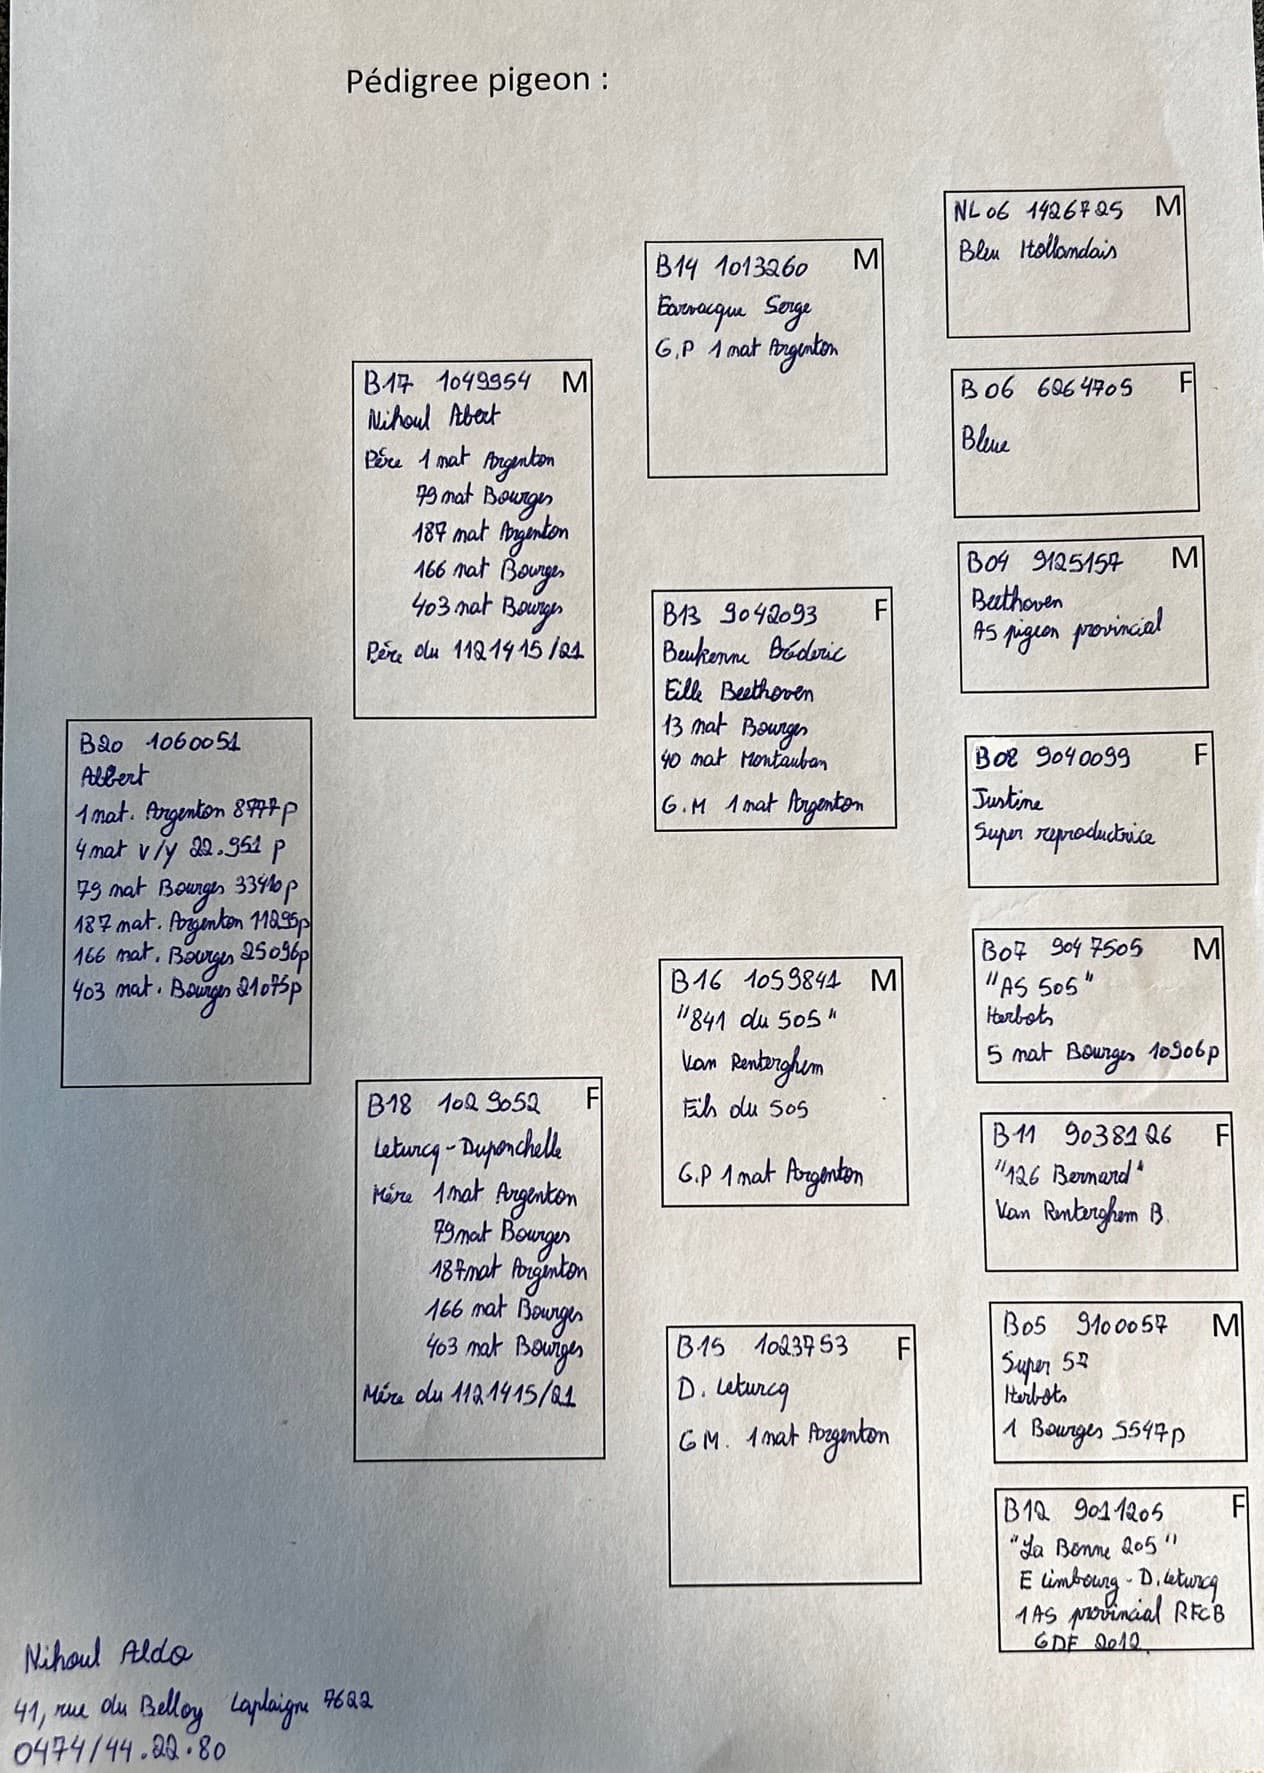 Pédigree pigeon :
B20 1060051
Albert
1 nat. Argenton 8777p
4 nat v/y 22.951 p
79 nat Bourges p
187 nat. Argenton 11295p
166 nat. Bourges 25096p
403 nat. Bourges 21075p
B17 1049954 M
Nihoul Abert
Père 1 nat Argenton
79 nat Bourges
187 nat Argenton
166 nat Bourges
403 nat Bourges
Père du 1121415/21
B18 1029052 F
Leturcq-Duponchelle
Mère 1 nat Argenton
79 nat Bourges
187 nat Argenton
166 nat Bourges
403 nat Bourges
Mère du 1121415/21
B14 1013260 M
Farvacque Serge
G.P 1 nat Argenton
B13 9042093 F
Beukenne Fréderic
Fille Beethoven
13 nat Bourges
40 nat Montauban
G.M 1 nat Argenton
B16 1059841 M
"841 du 505"
Van Renterghem
Fils du 505
G.P 1 nat Argenton
B15 1023753 F
D. Leturcq
GM. 1 nat Argenton
NL06 1426725 M
Bleu Hollandais
B06 6264705 F
Bleue
B04 9125157 M
Beethoven
AS pigeon provincial
B08 9040099 F
Justine
Super reproductrice
B07 9047505 M
"AS 505"
Herbots
5 nat Bourges 10906p
B11 9038126 F
"126 Bernard"
Van Renterghem B.
B05 9100057 M
Super 57
Herbots
1 Bourges 5547p
B12 9011205 F
"La Bonne 205"
E Limbourg - D. Leturcq
1 AS provincial RFCB
GDF 2012
Nihoul Aldo
41, rue du Belloy Laplaigne 7622
0474/44.22.80